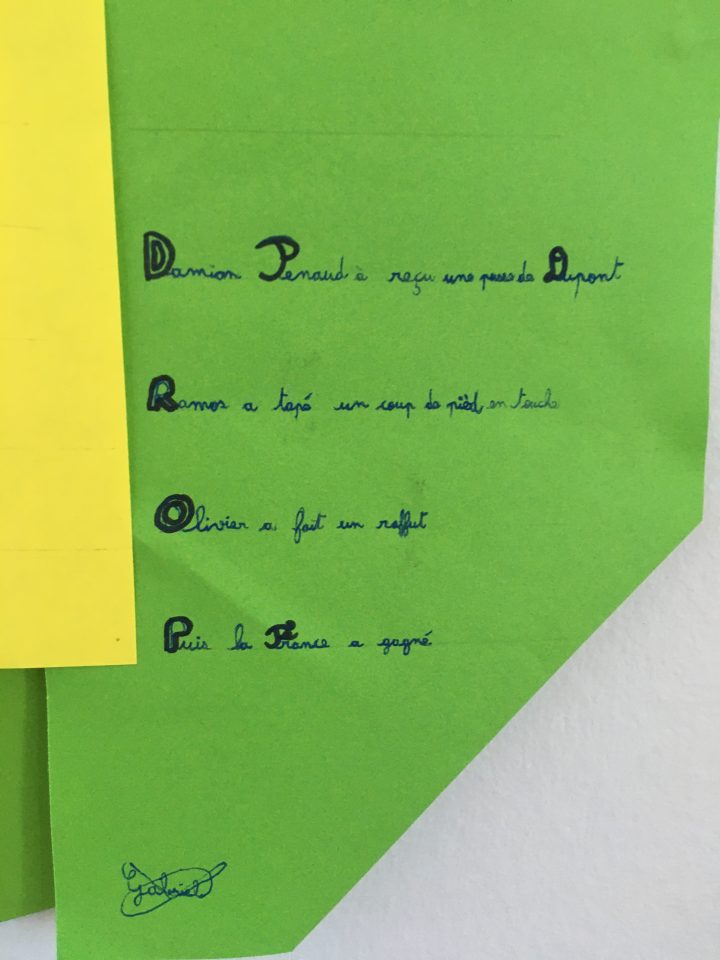 Damian Penaud à reçu une passe de Dupont
Ramos a tapé un coup de pièd en touche
Olivier a fait un raffut
Puis la France a gagné
Gabriel